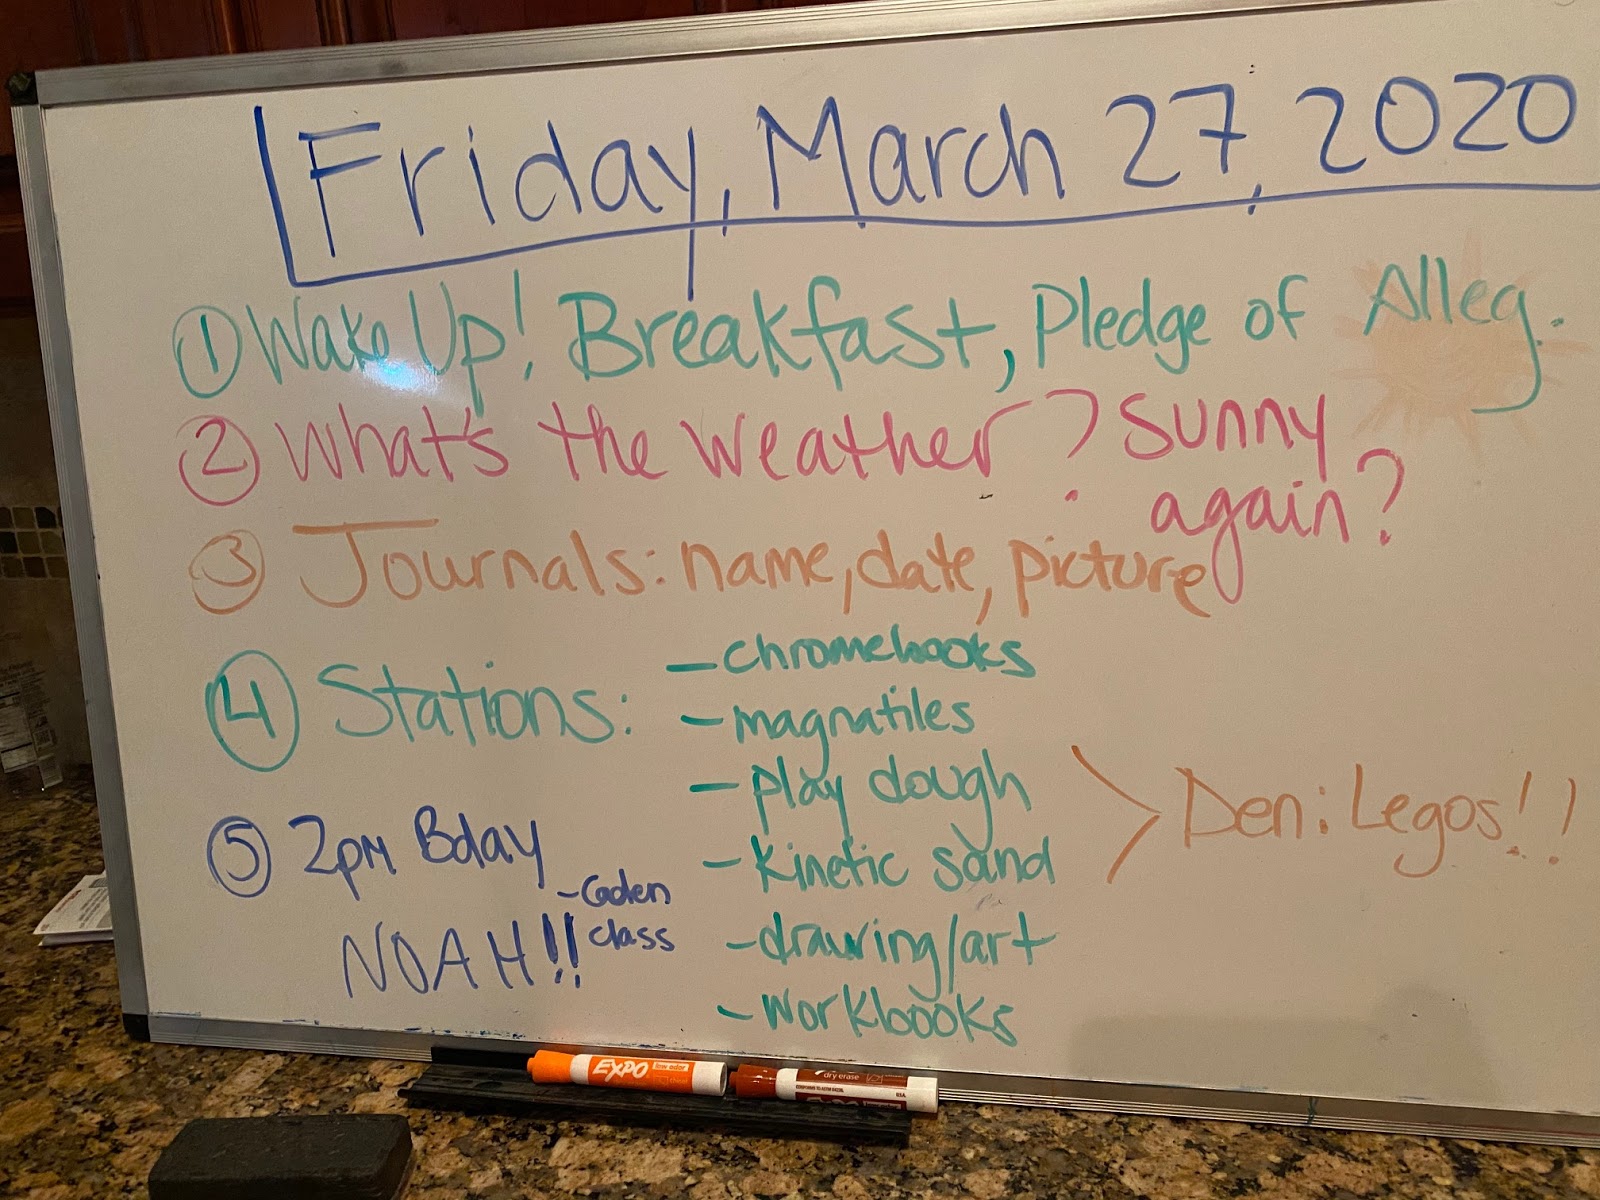 Friday, March 27, 2020
① Wake Up! Breakfast, Pledge of Alleg.
② What's the Weather? Sunny
again?
③ Journals: name, date, picture
④ Stations:
- chromebooks
- magnatiles
- play dough
- kinetic sand
- drawing/art
- workbooks
Den: Legos!!
⑤ 2pm Bday
NOAH!!
- Caden
class
EXPO low odor
dry erase